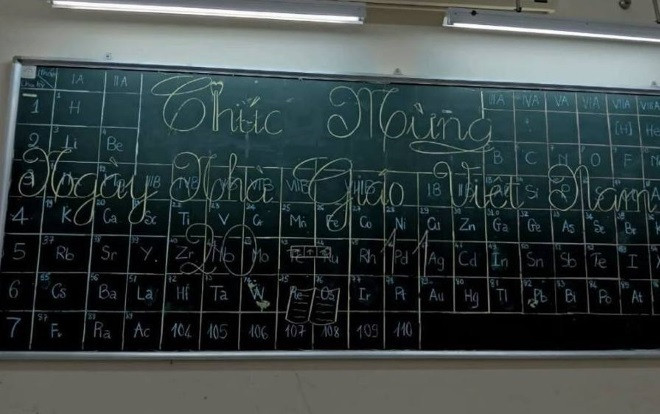 Chúc Mừng
Ngày Nhà Giáo Việt Nam
20 - 11
IA IIA IIIA IVA VA VIA VIIA
1 H [H] He
2 Li Be B C N O F
3 IIIB IVB VIB VIIB VIIIB IB Si
4 K Ca Sc Ti V Cr Mn Fe Co Ni Cu Zn Ga Ge As Se Br
5 Rb Sr Y Zr Nb Mo Rh Pd Ag Cd In Sn Sb Te I
6 Cs Ba La Hf Ta W Re Os Ir Pt Au Hg Tl Pb Bi Po At
7 Fr Ra Ac 104 105 106 107 108 109 110